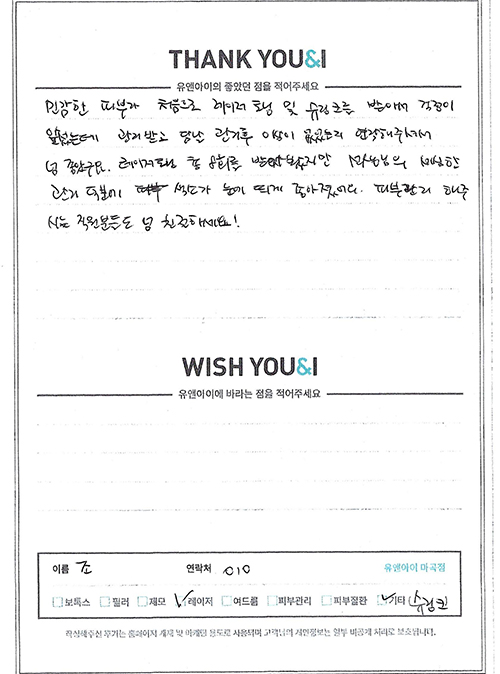 THANK YOU&I
유앤아이의 좋았던 점을 적어주세요
민감한 피부가 처음으로 레이저 토닝 및 슈링크를 받아서 걱정이
많았는데 관리받고 당일 관리후 이상이 없었는지 연락해주셔서
넘 좋았구요. 레이저토닝 총 8회를 받았지만 원장님의 세심한
관리 덕분에 색소가 눈에 띄게 좋아졌어요. 피부관리 해주
시는 직원분들도 넘 친절하세요!
WISH YOU&I
유앤아이에 바라는 점을 적어주세요
이름 조 연락처 010 유앤아이 마곡점
보톡스 필러 제모 레이저 여드름 피부관리 피부질환 기타 (슈링크)
작성해주신 후기는 홈페이지 게재 및 마케팅 용도로 사용되며 고객님의 개인정보는 일부 비공개 처리로 보호됩니다.